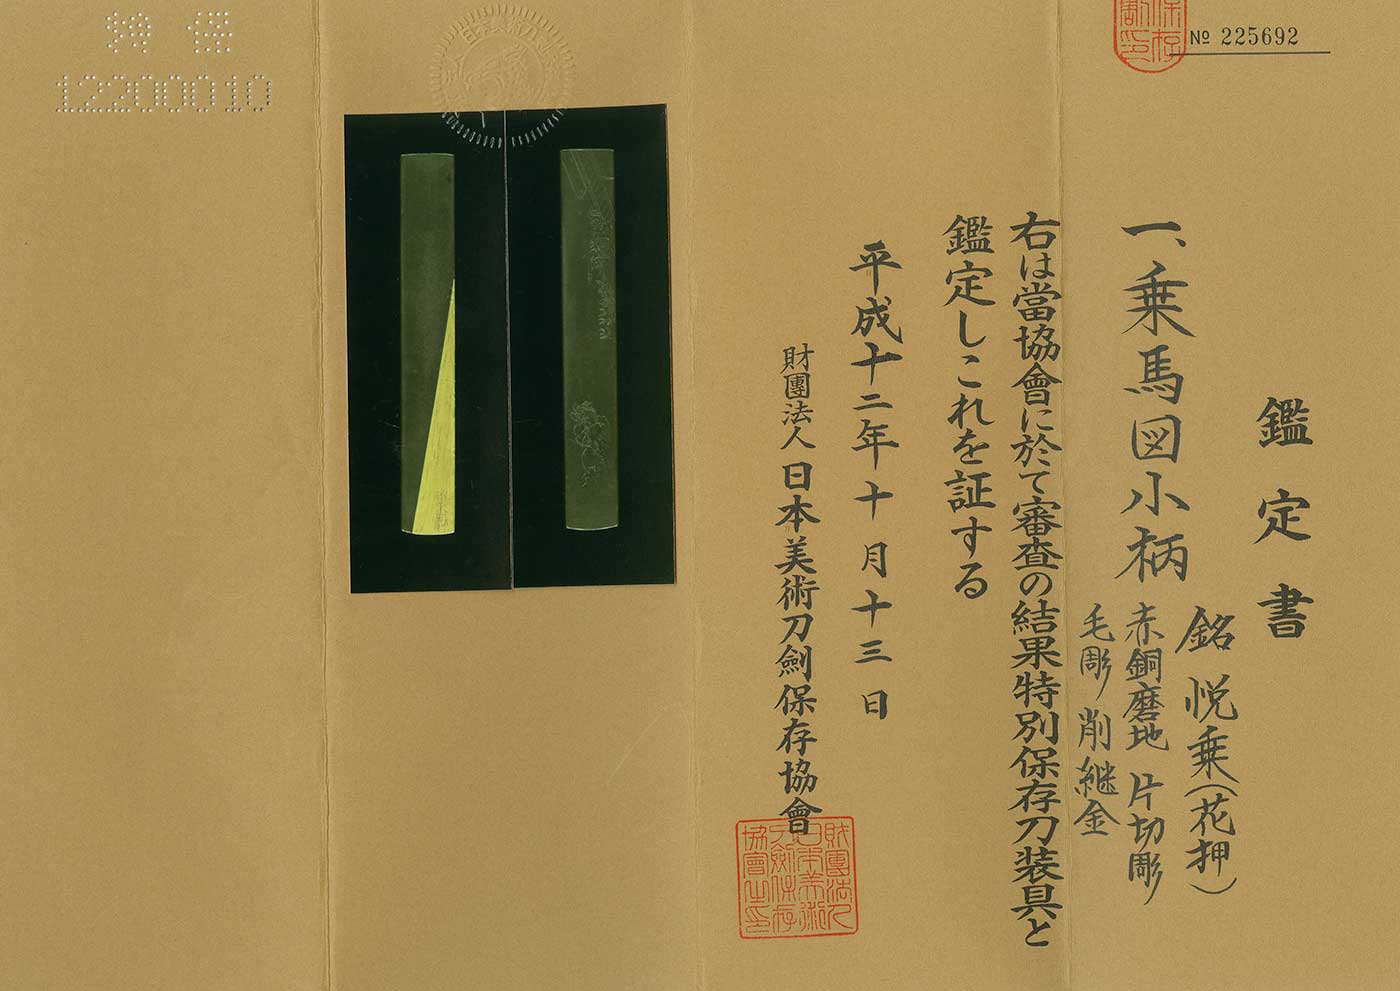 № 225692
鑑定書
一、乗馬図小柄
銘 悦乗(花押)
赤銅磨地 片切彫
毛彫 削継金
右は當協會に於て審査の結果特別保存刀装具と
鑑定しこれを証する
平成十二年十月十三日
財團法人 日本美術刀劍保存協會
財團法人
日本美術
刀劍保存
協會之印
特保
12200010